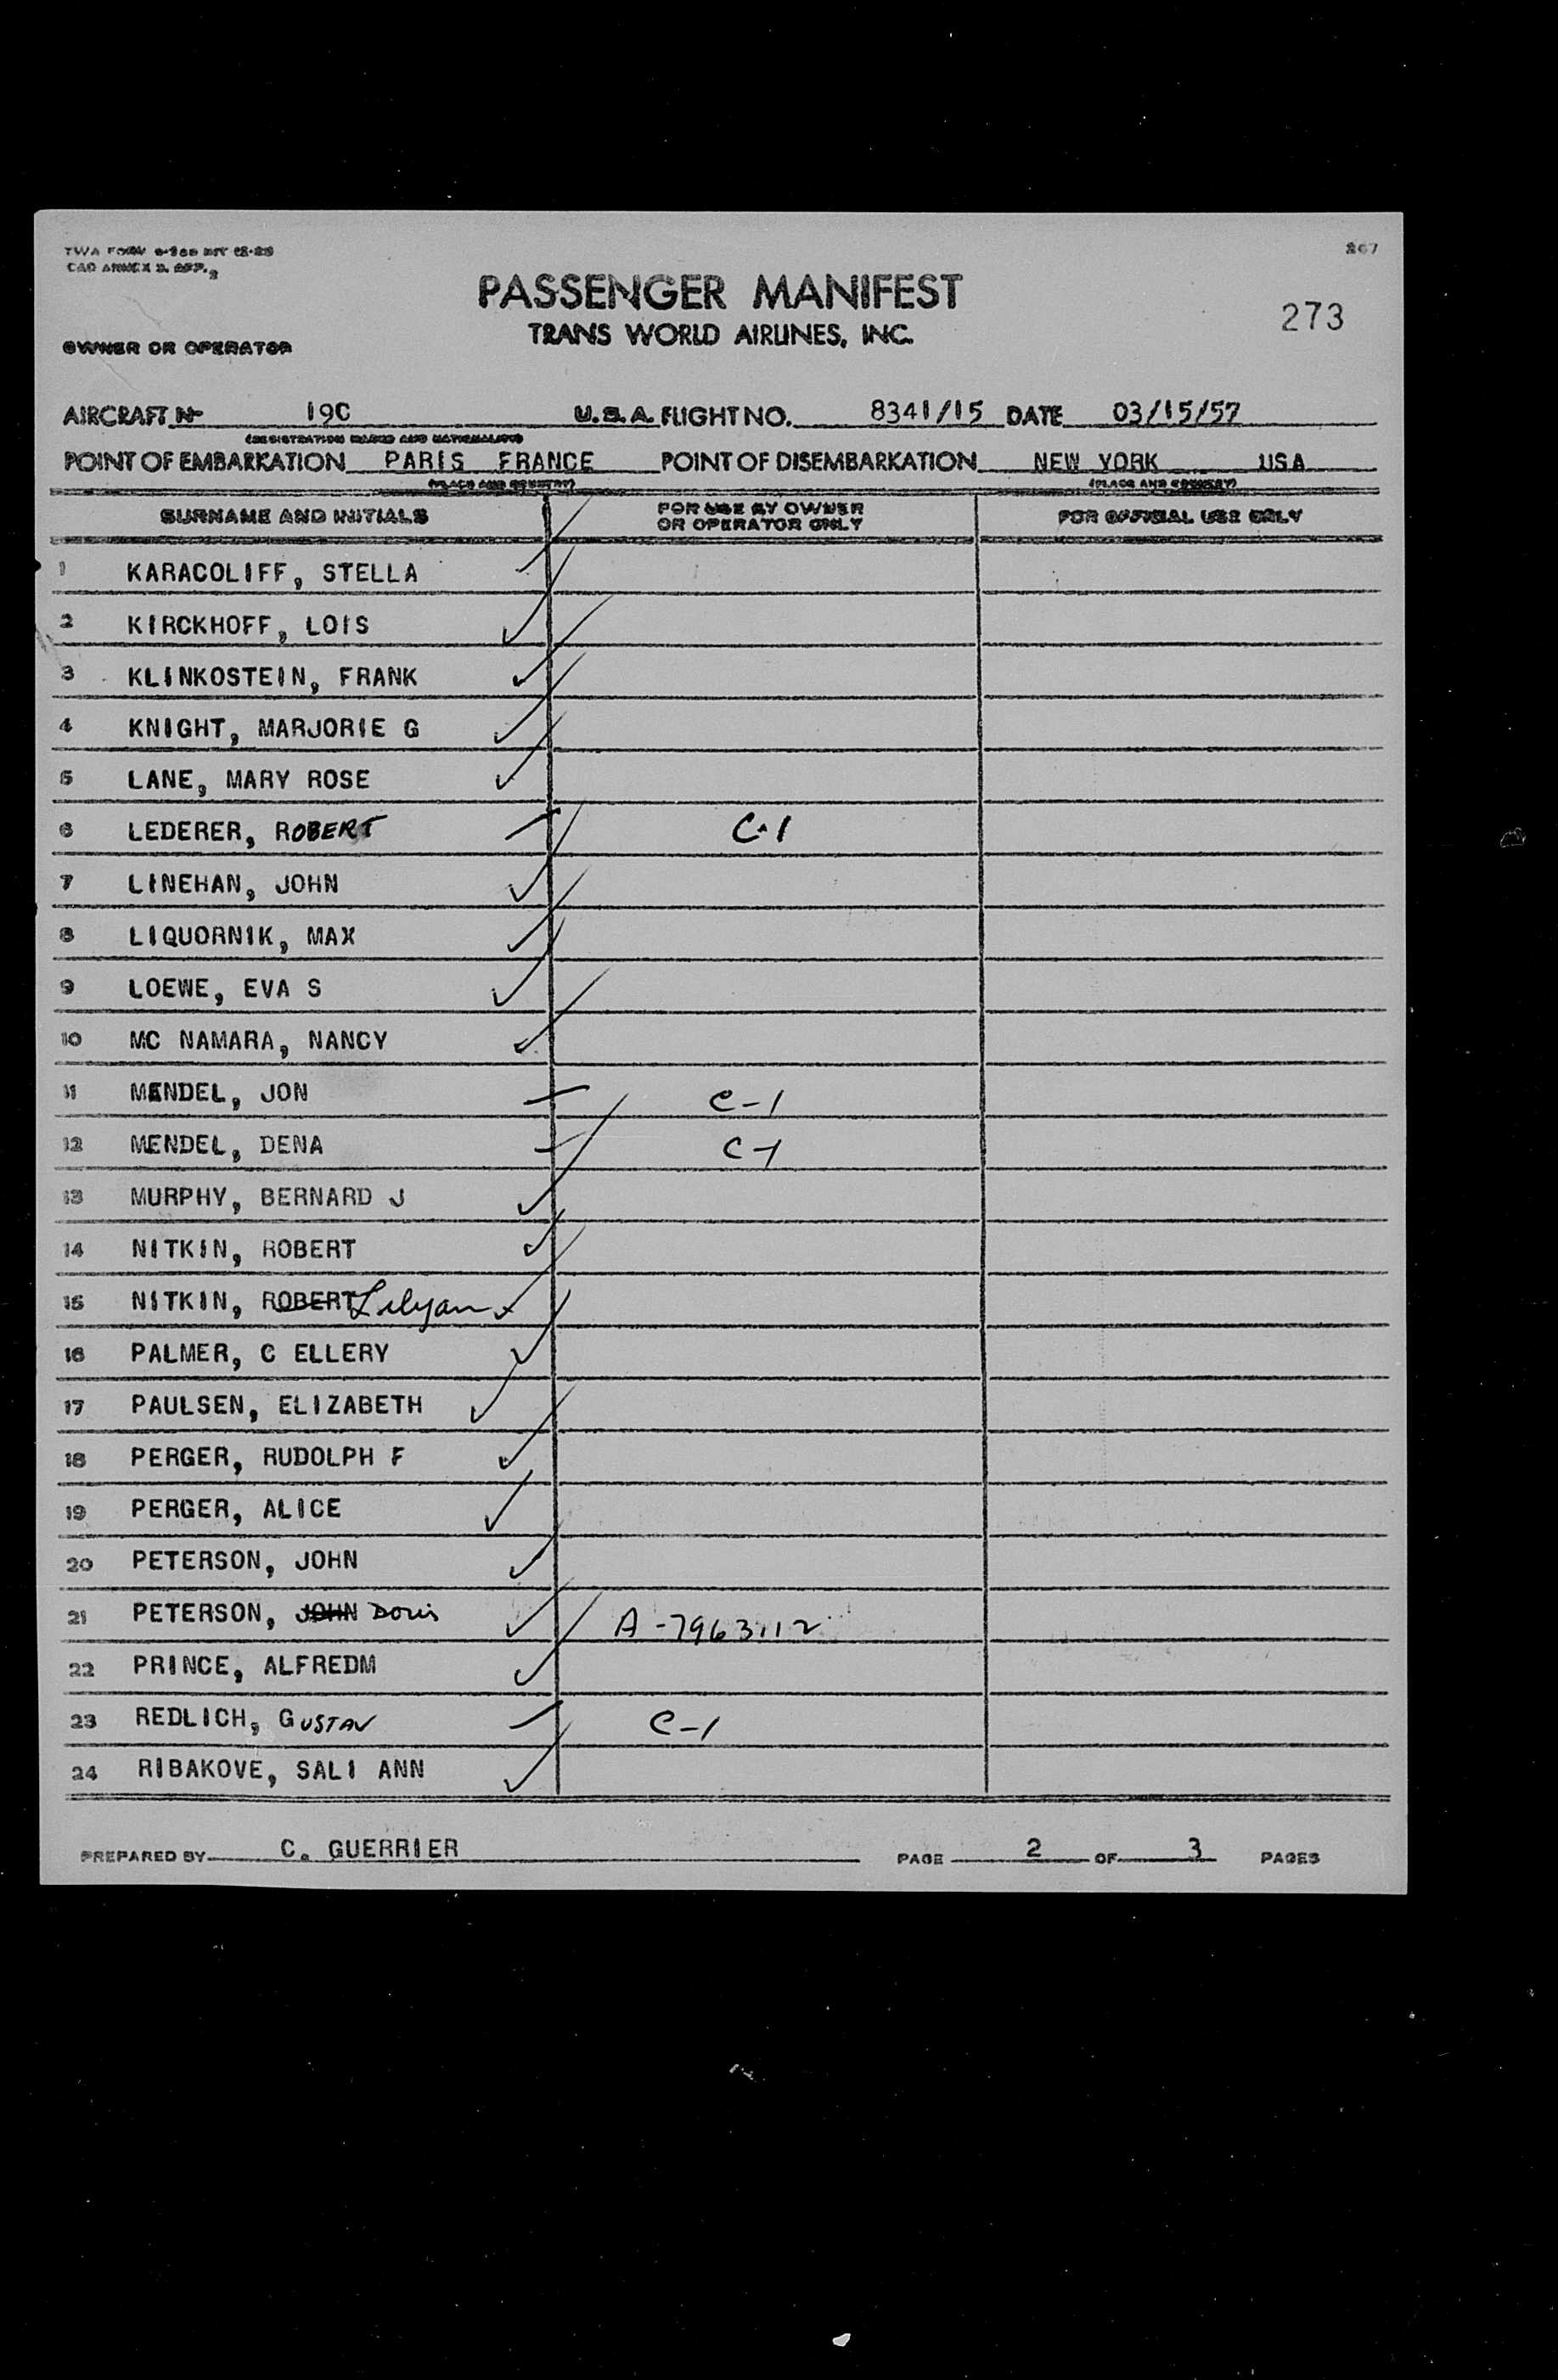 267
CAO ANNEX 9. APP. 2
PASSENGER MANIFEST
273
TRANS WORLD AIRLINES, INC.
OWNER OR OPERATOR
AIRCRAFT N- 19C U.S.A. FLIGHT NO. 8341/15 DATE 03/15/57
(REGISTRATION MARKS AND NATIONALITY)
POINT OF EMBARKATION PARIS FRANCE POINT OF DISEMBARKATION NEW YORK USA
(PLACE AND COUNTRY) (PLACE AND COUNTRY)
SURNAME AND INITIALS FOR USE BY OWNER OR OPERATOR ONLY FOR OFFICIAL USE ONLY
1 KARACOLIFF, STELLA
2 KIRCKHOFF, LOIS
3 KLINKOSTEIN, FRANK
4 KNIGHT, MARJORIE G
5 LANE, MARY ROSE
6 LEDERER, ROBERT C-1
7 LINEHAN, JOHN
8 LIQUORNIK, MAX
9 LOEWE, EVA S
10 MC NAMARA, NANCY
11 MENDEL, JON C-1
12 MENDEL, DENA C-1
13 MURPHY, BERNARD J
14 NITKIN, ROBERT
15 NITKIN, ROBERT Lilyan
16 PALMER, C ELLERY
17 PAULSEN, ELIZABETH
18 PERGER, RUDOLPH F
19 PERGER, ALICE
20 PETERSON, JOHN
21 PETERSON, JOHN Doris A-7963112
22 PRINCE, ALFREDM
23 REDLICH, GUSTAV C-1
24 RIBAKOVE, SALI ANN
PREPARED BY C. GUERRIER PAGE 2 OF 3 PAGES